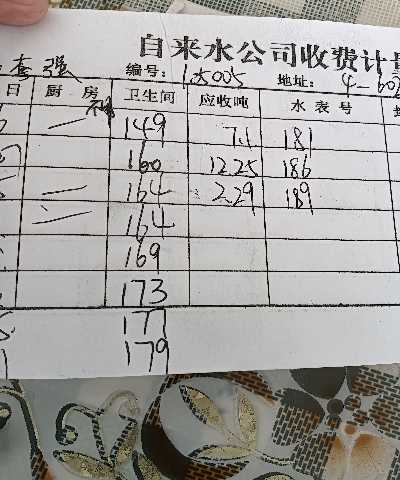 自来水公司收费计量
查强 编号: 15005 地址: 4-602
日 厨房 卫生间 应收吨 水表号
149 7.1 181
160 12.25 186
164 2.29 189
164
169
173
177
179